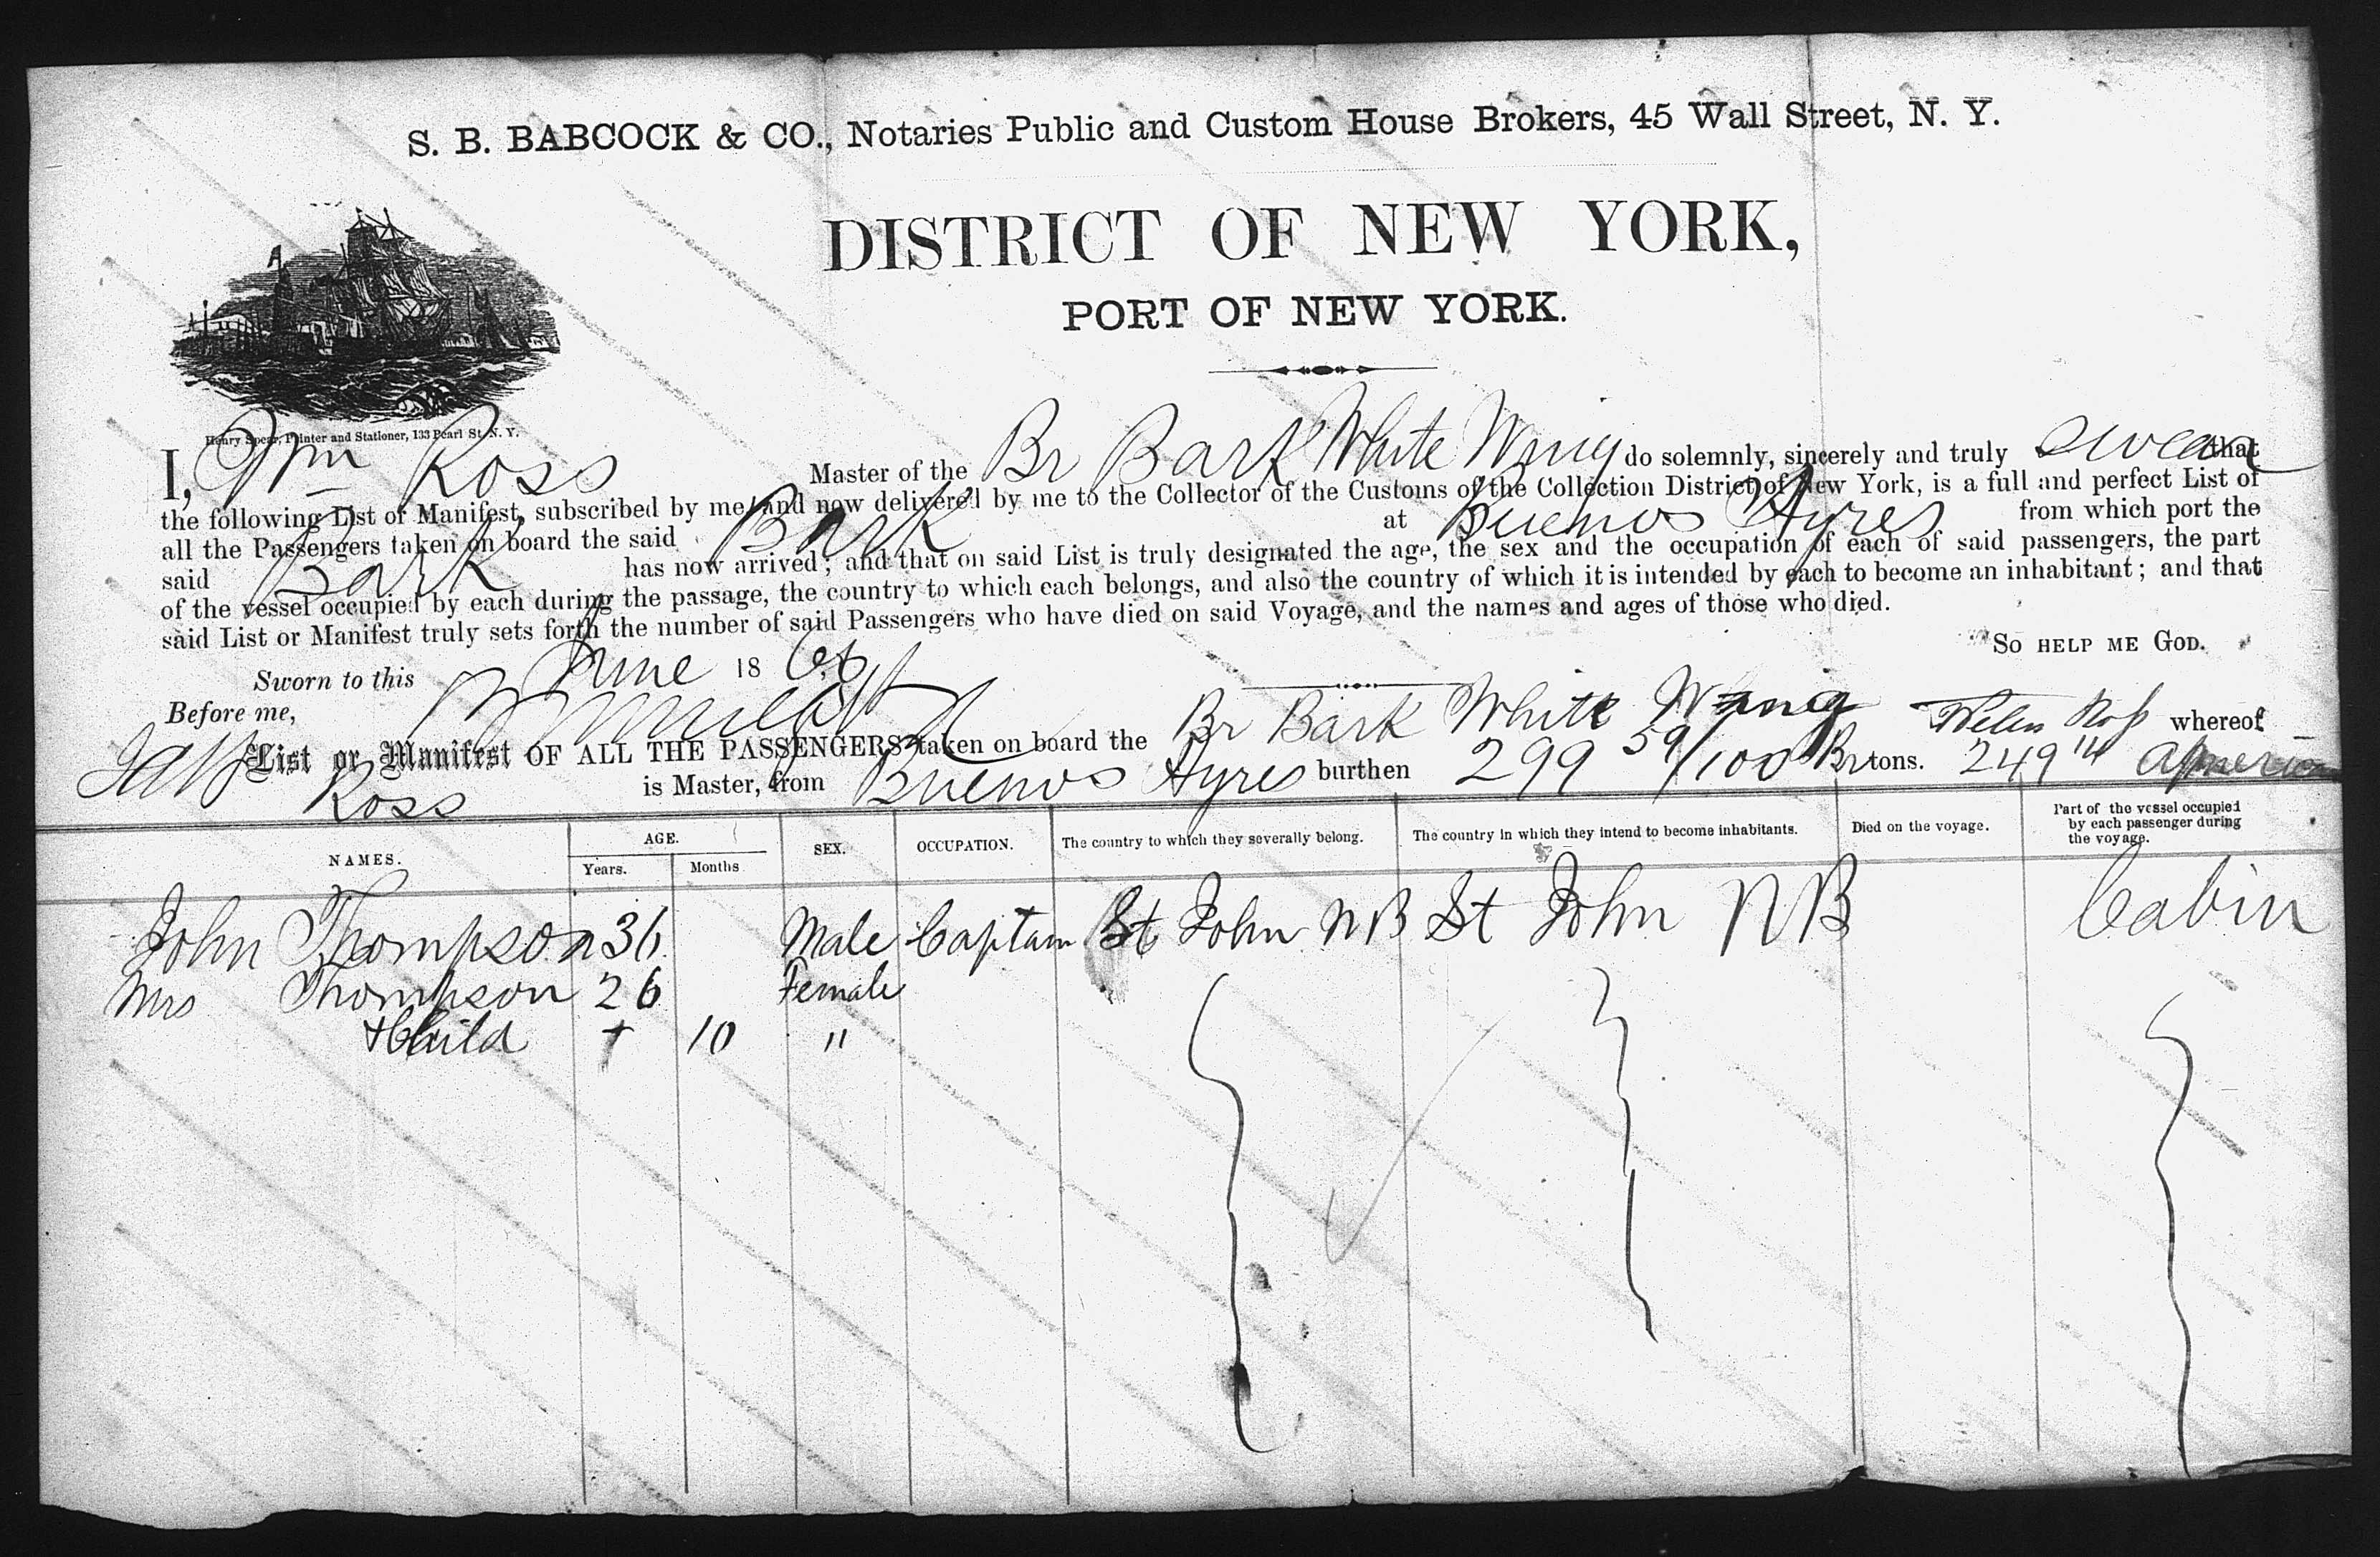 S. B. BABCOCK & CO., Notaries Public and Custom House Brokers, 45 Wall Street, N. Y.
DISTRICT OF NEW YORK,
PORT OF NEW YORK.
Henry Spear, Printer and Stationer, 133 Pearl St. N. Y.
I, Wm Ross Master of the Br Bark White Wing do solemnly, sincerely and truly swear that
the following List or Manifest, subscribed by me, and now delivered by me to the Collector of the Customs of the Collection District of New York, is a full and perfect List of
all the Passengers taken on board the said Bark at Buenos Ayres from which port the
said Bark has now arrived; and that on said List is truly designated the age, the sex and the occupation of each of said passengers, the part
of the vessel occupied by each during the passage, the country to which each belongs, and also the country of which it is intended by each to become an inhabitant; and that
said List or Manifest truly sets forth the number of said Passengers who have died on said Voyage, and the names and ages of those who died.
SO HELP ME GOD.
Sworn to this June 18
Before me,
List or Manifest OF ALL THE PASSENGERS taken on board the Br Bark White Wing whereof
Ross is Master, from Buenos Ayres burthen 299 59/100 Br tons. 249
NAMES. AGE. Years. Months SEX. OCCUPATION. The country to which they severally belong. The country in which they intend to become inhabitants. Died on the voyage. Part of the vessel occupied by each passenger during the voyage.
John Thompson 36 Male Captain St John NB St John NB Cabin
Mrs Thompson 26 Female
+ Child + 10 "